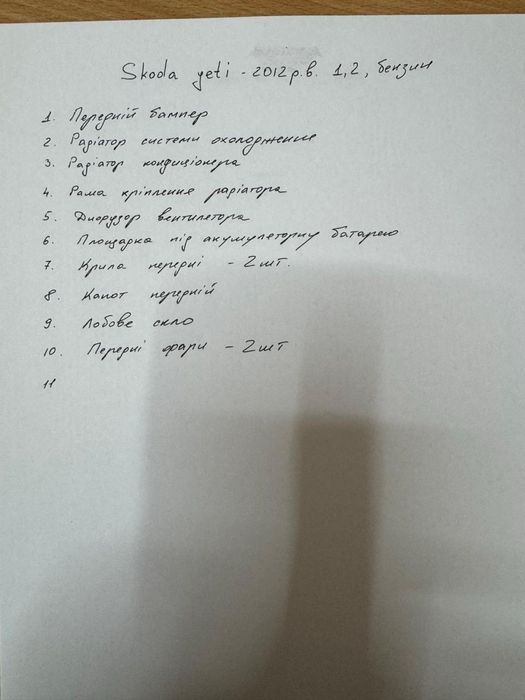 Skoda yeti - 2012 р.в. 1,2, бензин
1. Передній бампер
2. Радіатор системи охолодження
3. Радіатор кондиціонера
4. Рама кріплення радіатора
5. Дифузор вентилятора
6. Площадка під акумуляторну батарею
7. Крила передні - 2 шт.
8. Капот передній
9. Лобове скло
10. Передні фари - 2 шт
11